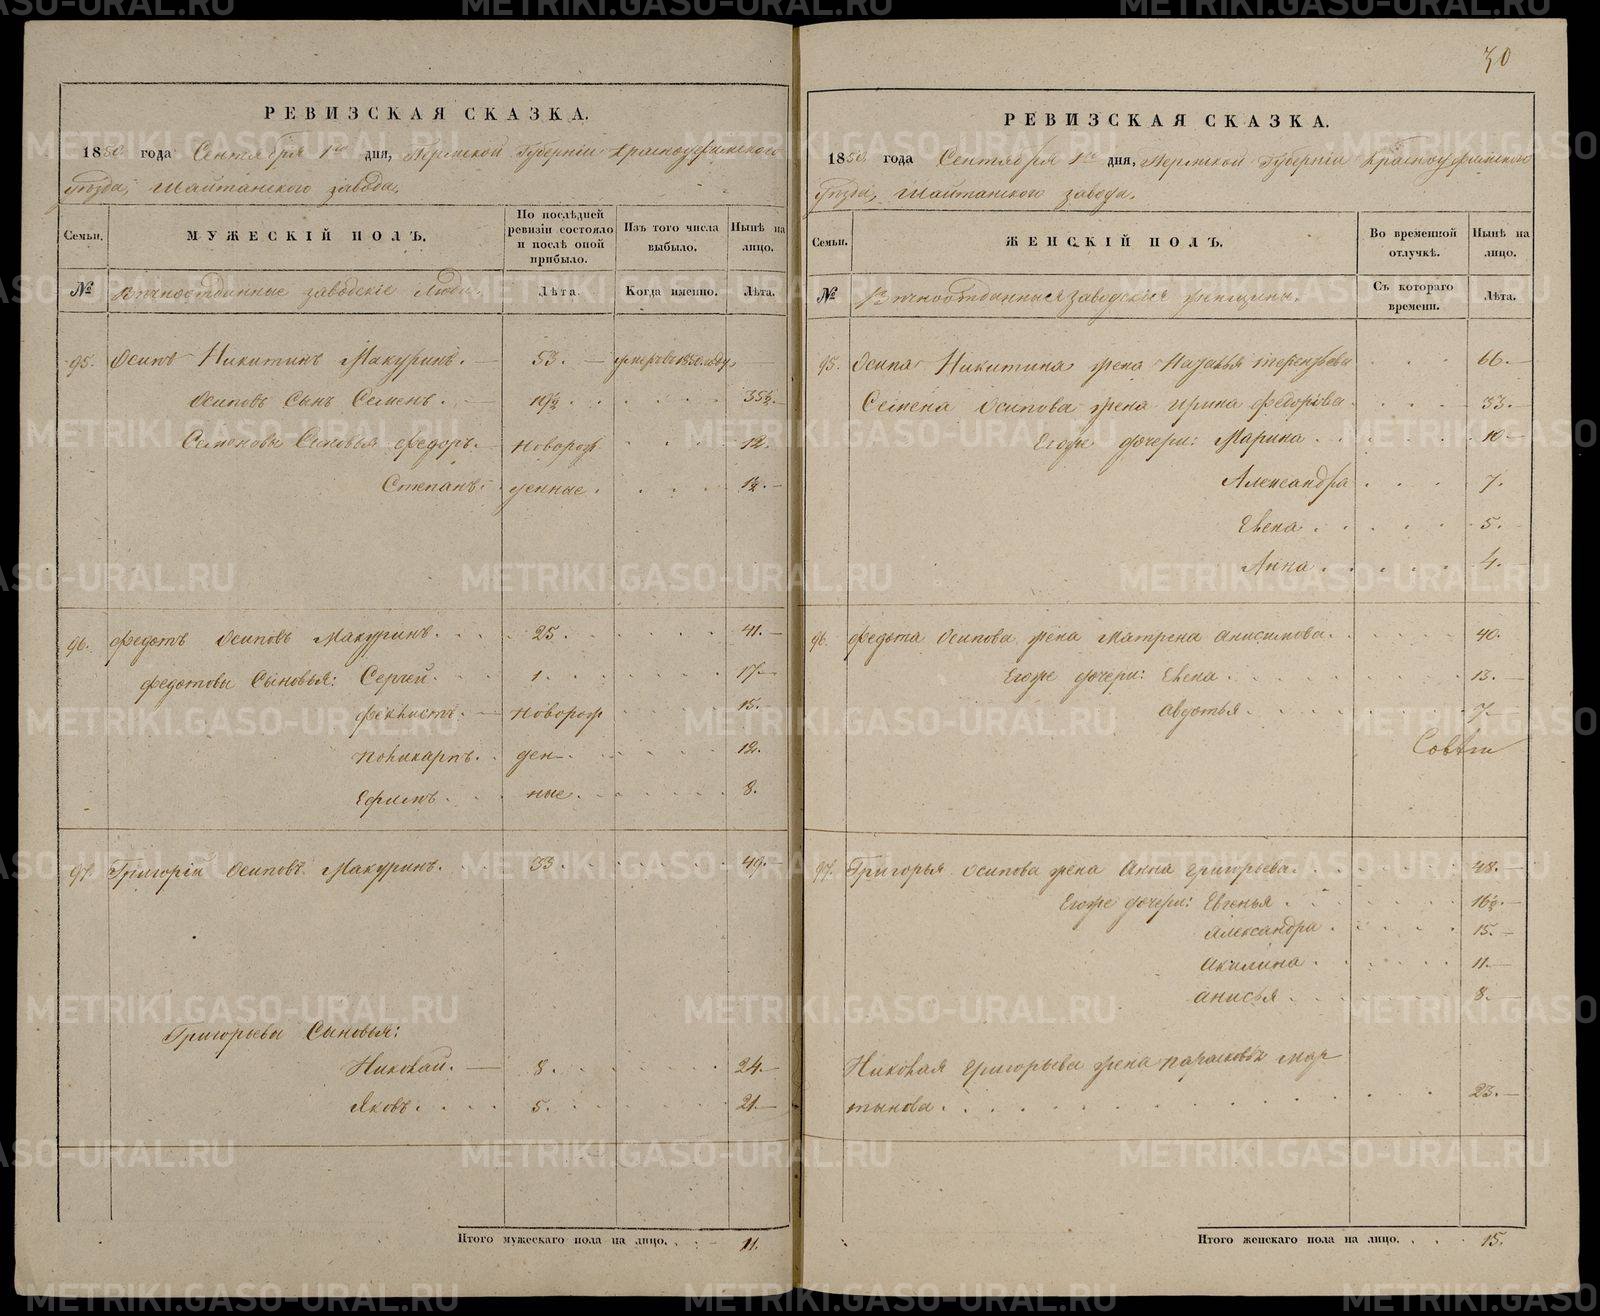 РЕВИЗСКАЯ СКАЗКА.
1850 года Сентября 1го дня, Пермской Губерніи Красноуфимскаго
Уѣзда, Шайтанского завода.
Семьи. МУЖЕСКІЙ ПОЛЪ. По послѣдней ревизіи состояло и послѣ оной прибыло. Изъ того числа выбыло. Нынѣ на лицо.
№ Вѣчноотданные заводскіе Люди. Лѣта. Когда именно. Лѣта.
95. Осипъ Никитинъ Макуринъ. 53. умеръ въ 1850 году
Осиповъ Сынъ Семенъ. 19½ 35½
Семеновы Сыновья Федоръ. Новорож 12.
Степанъ. денные. 1½
96. Федотъ Осиповъ Макуринъ. 25. 41.
Федотовы Сыновья: Сергѣй. 1. 17.
Феклистъ. Новорож 15.
Поликарпъ. ден 12.
Ефимъ. ные. 8.
97. Григорій Осиповъ Макуринъ. 33. 49.
Григорьевы Сыновья:
Николай. 8. 24.
Яковъ. 5. 21.
Итого мужескаго пола на лицо. 11.
30
РЕВИЗСКАЯ СКАЗКА.
1850 года Сентября 1го дня, Пермской Губерніи Красноуфимскаго
Уѣзда, Шайтанского завода.
Семьи. ЖЕНСКІЙ ПОЛЪ. Во временной отлучкѣ. Нынѣ на лицо.
№ Вѣчноотданныя заводскія женщины. Съ котораго времени. Лѣта.
95. Осипа Никитина жена Наталья Терентьева 66.
Семена Осипова жена Ирина Федорова 33.
Егоже дочери: Марина 10
Александра 7.
Елена 5.
Анна 4.
96. Федота Осипова жена Матрена Анисимова. 40.
Егоже дочери: Елена 13.
Авдотья 7
97. Григорья Осипова жена Анна Григорьева. 48.
Егоже дочери: Евгенья 16½
Александра 15.
Акилина 11.
Анисья 8.
Николая Григорьева жена Парасковья Мар
тынова 23.
Итого женскаго пола на лицо. 15.
METRIKI.GASO-URAL.RU